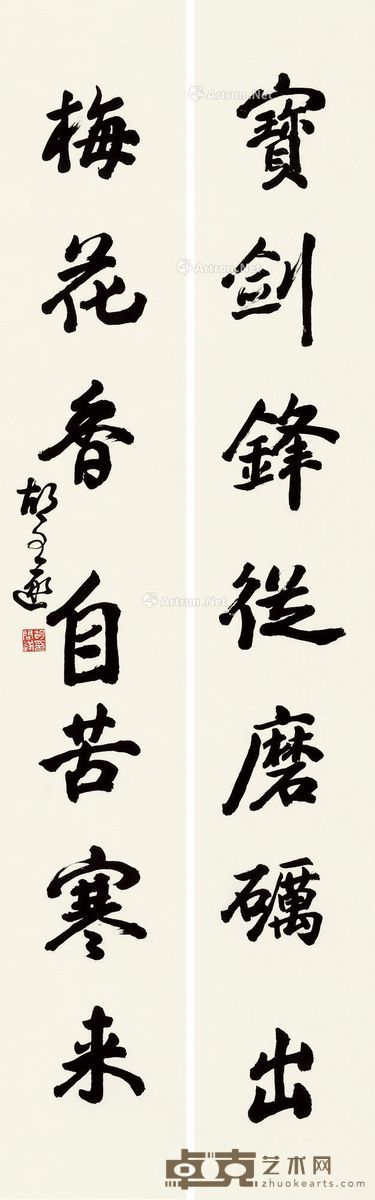 寶劍鋒從磨礪出
梅花香自苦寒来
胡問遂
Artron.Net
Artron.Net
Artron.Net
卓克艺术网
zhuokearts.com